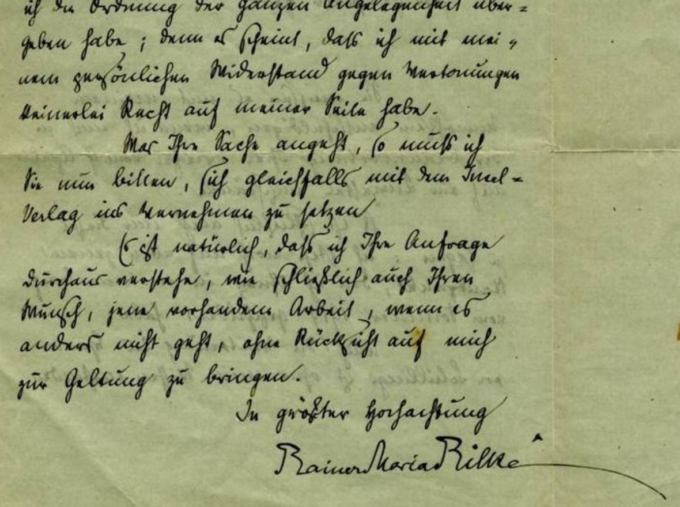 ich die Ordnung der ganzen Angelegenheit über=
geben habe; denn es scheint, dass ich mit mei=
nem persönlichen Widerstand gegen Vertonungen
keinerlei Recht auf meiner Seite habe.
Was Ihre Sache angeht, so muss ich
Sie nun bitten, sich gleichfalls mit dem Insel=
Verlag ins Vernehmen zu setzen
Es ist natürlich, dass ich Ihre Anfrage
durchaus verstehe, wie schließlich auch Ihren
Wunsch, jene vorhandene Arbeit, wenn es
anders nicht geht, ohne Rücksicht auf mich
zur Geltung zu bringen.
In größter Hochachtung
Rainer Maria Rilke